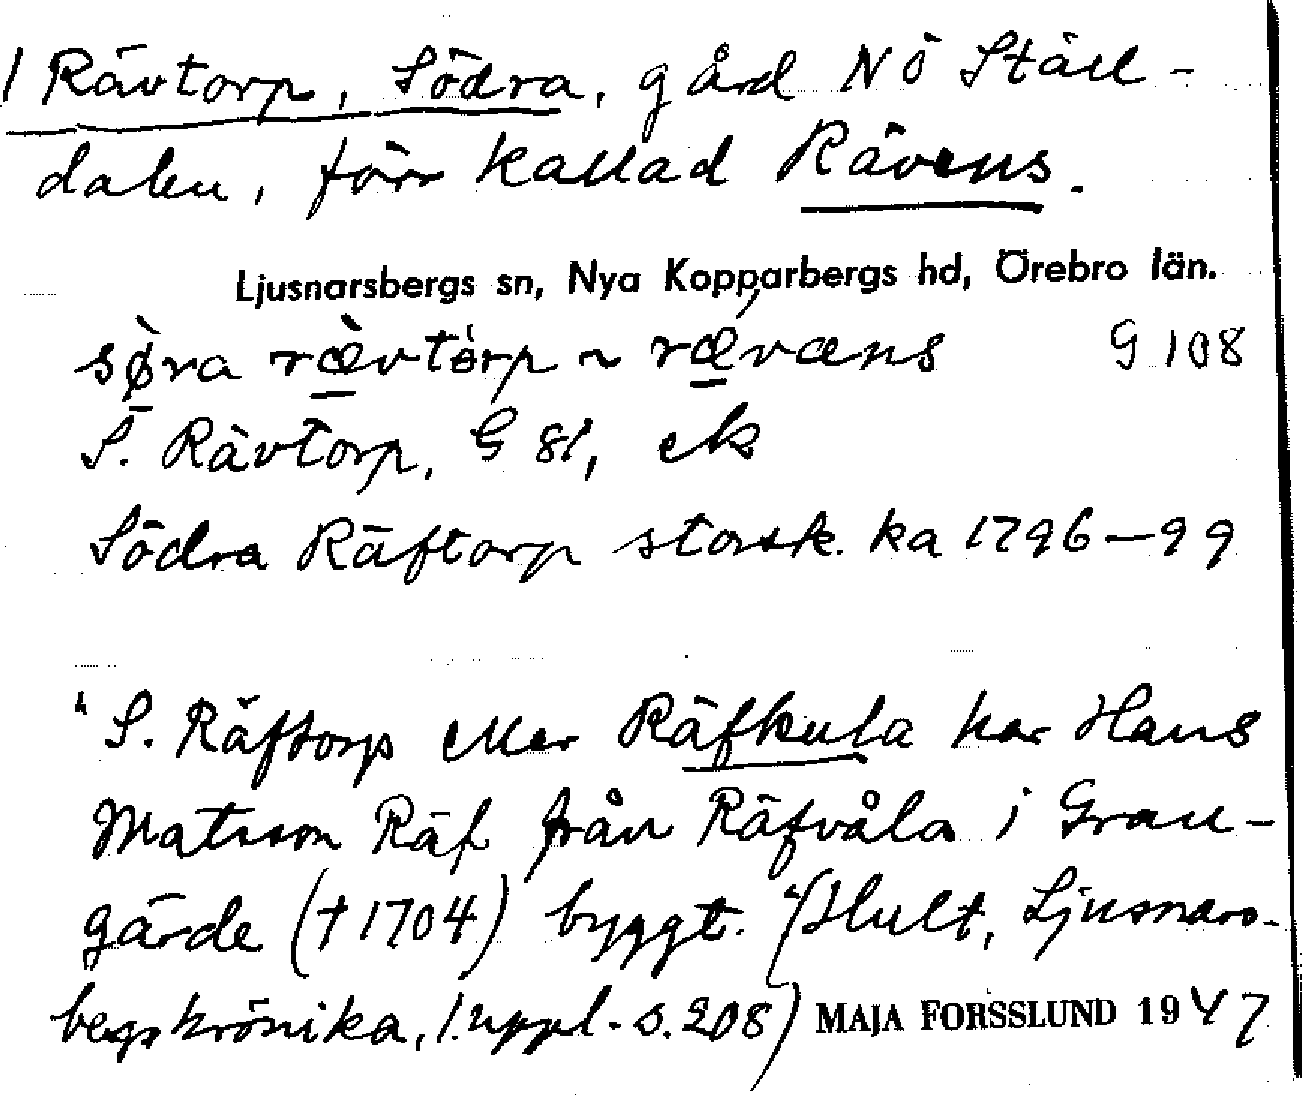 1 Rävtorp, Södra, gård NÖ Ställ-
dalen, förr kallad Rävens.
Ljusnarsbergs sn, Nya Kopparbergs hd, Örebro län.
sø̀ra ræ̀vtórp ~ rǽvæns G 108
S. Rävtorp, G 81, ek
Södra Räftorp storsk. ka 1796–99
"S. Räftorp eller Räfkula har Hans
Matsson Räf från Räfvåla i Gran-
gärde († 1704) byggt." (Hult, Ljusnars-
bergskrönika, 1. uppl. s. 208) MAJA FORSSLUND 1947